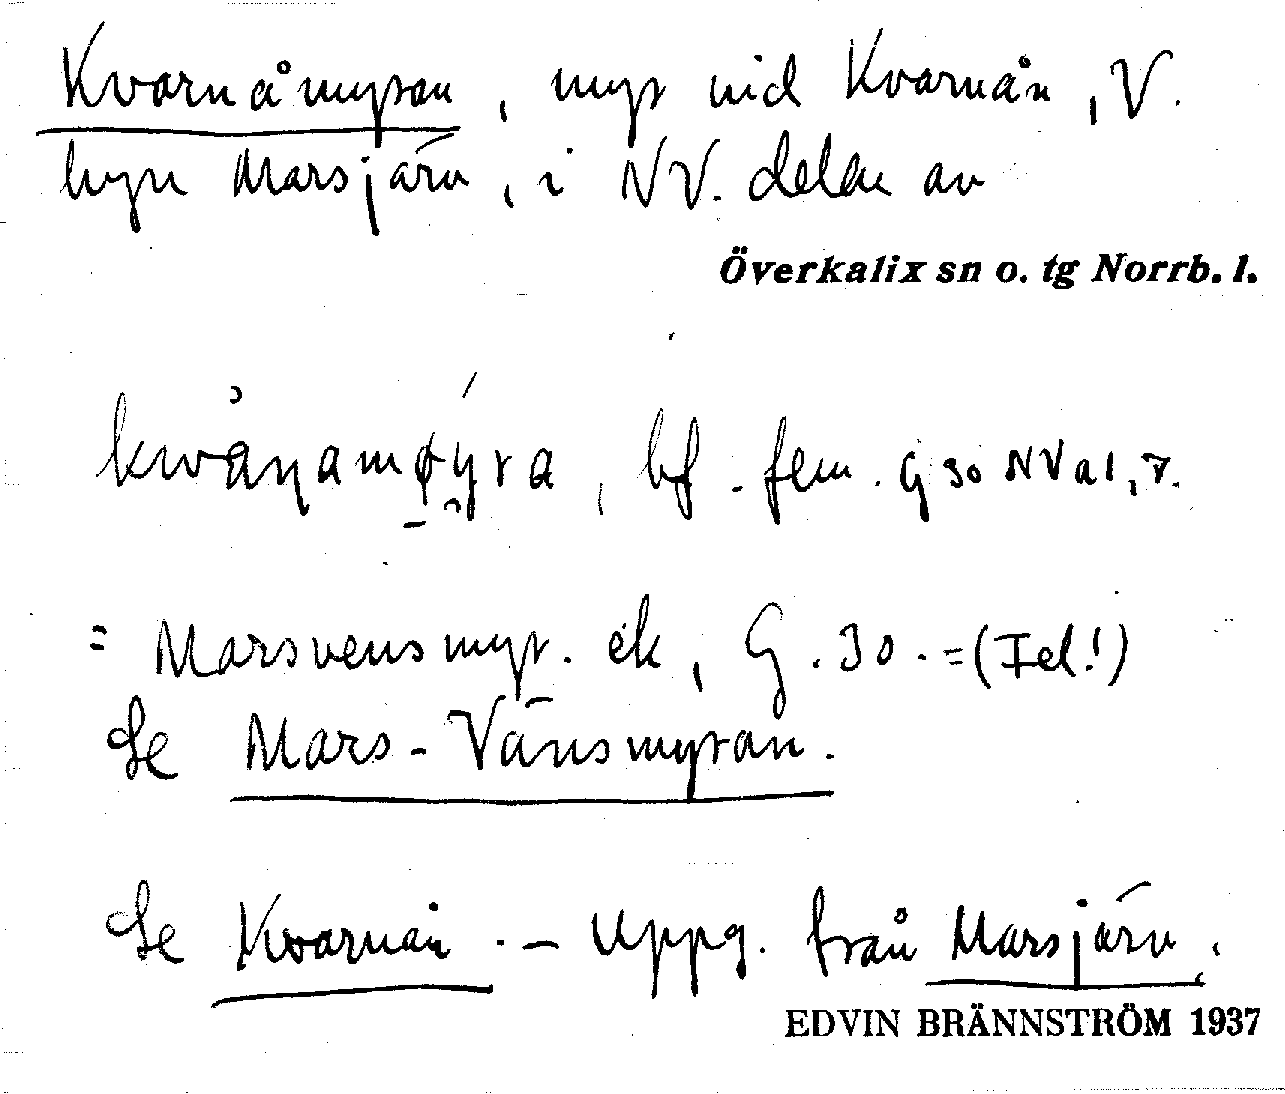 Kvarnåmyran, myr vid Kvarnån, V.
byn Marsjärv, i NV. delen av
Överkalix sn o. tg Norrb. l.
kwån̥amøyra, bf. fem. G 30 NV a 1, 7.
= Marsvensmyr. ek, G. 30. = (Fel!)
Se Mars-Vänsmyran.
Se Kvarnån. – Uppg. från Marsjärv.
EDVIN BRÄNNSTRÖM 1937